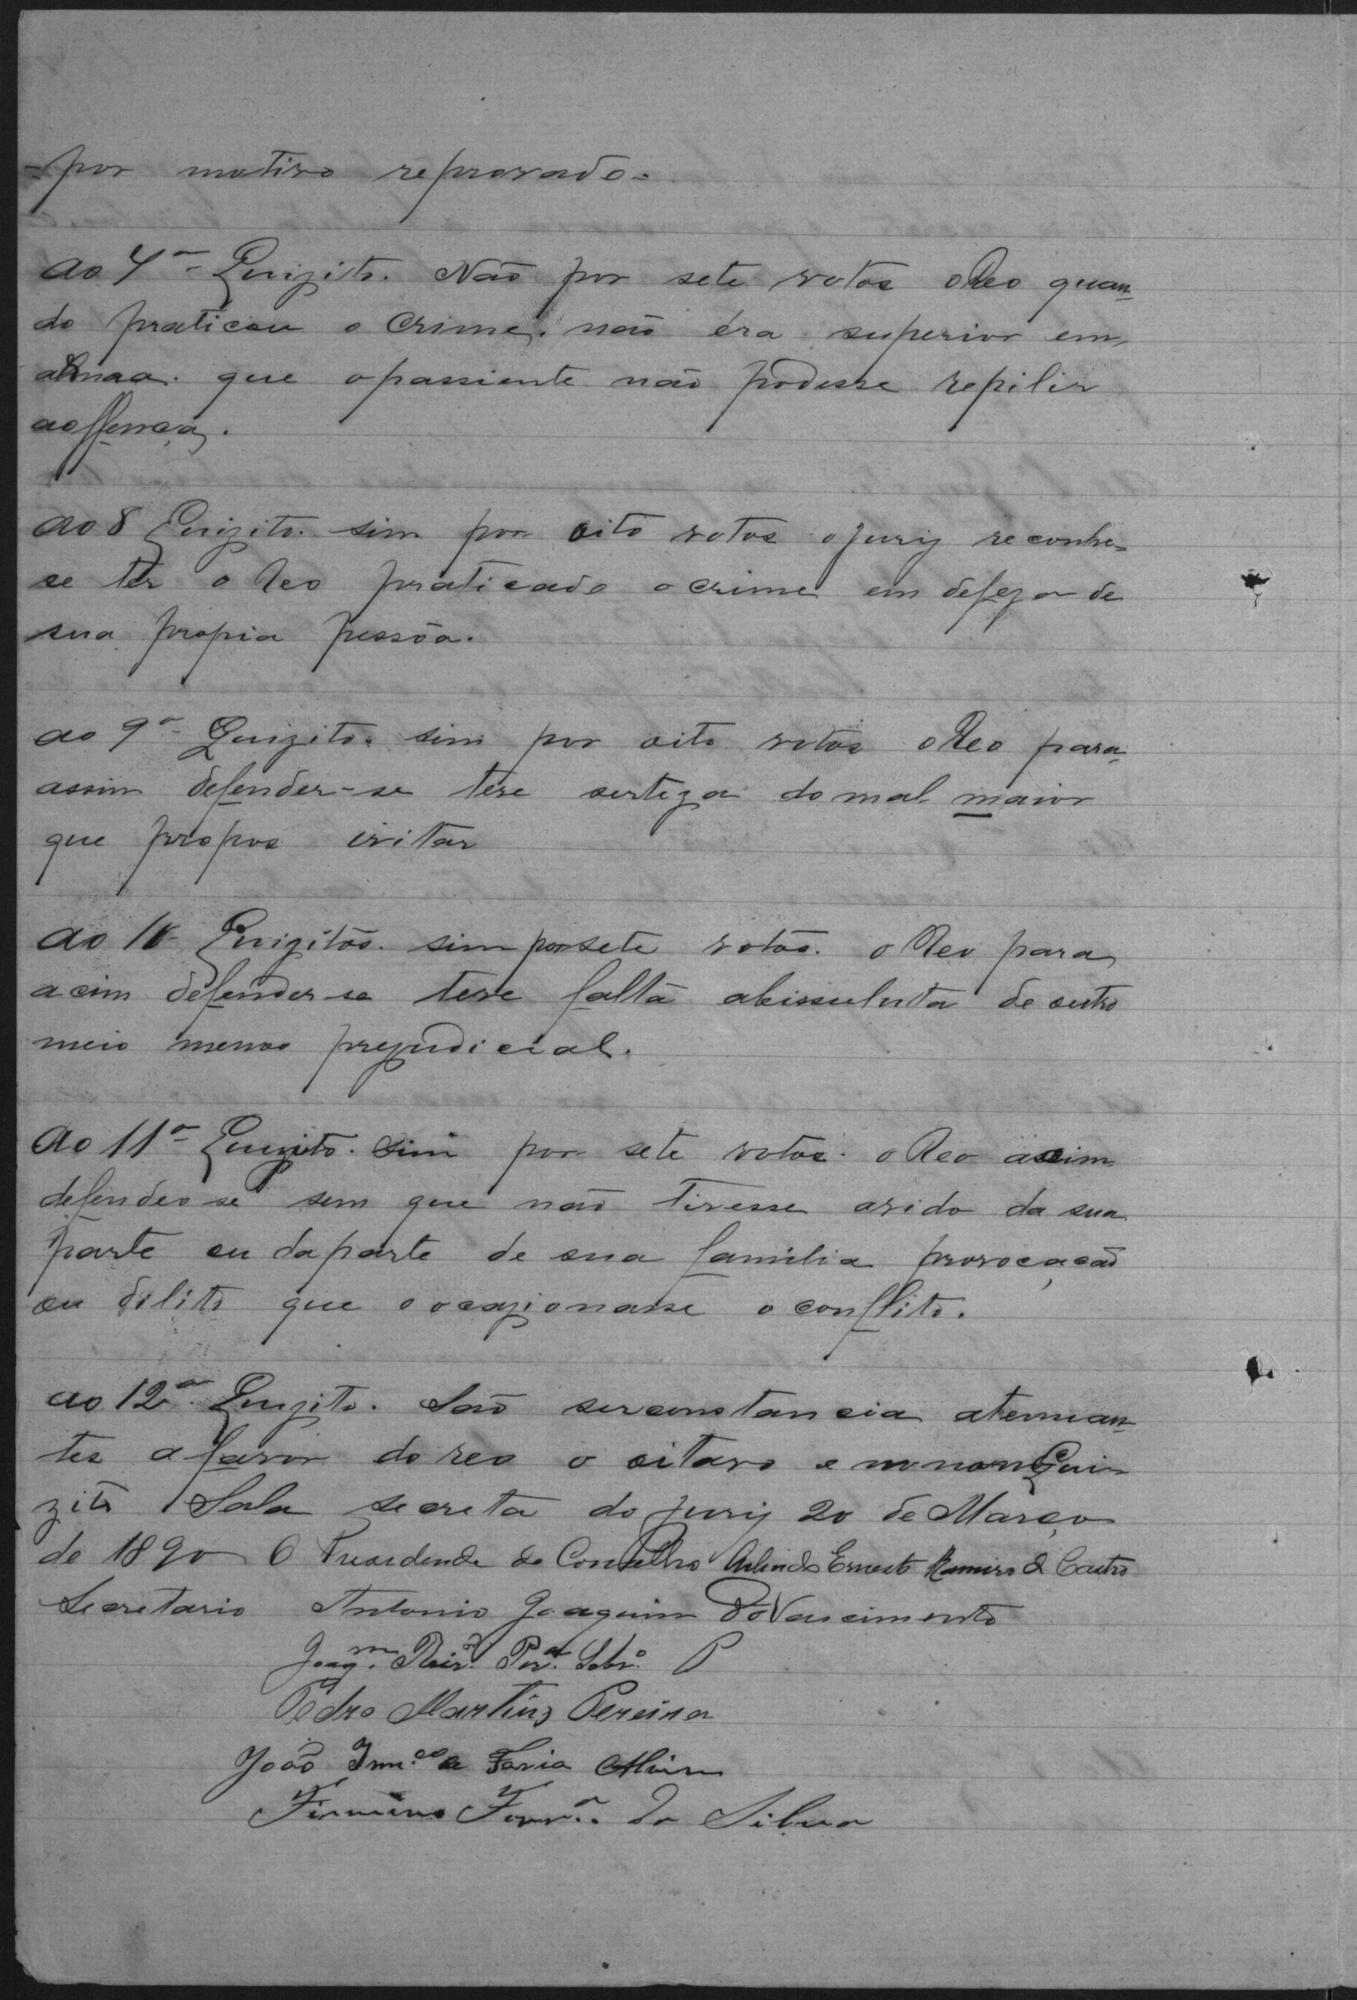 por motivo reprovado.
ao 7º Quizito. Não por sete votos o Reo quan
do praticou o crime, não éra superior em
armas que opassiente não podesse repilir
aoffença.
ao 8 Quizito. sim por oito votos o jury reconhe=
se ter o Reo praticado o crime em defeza de
sua propia pessôa.
ao 9º Quizito. sim por oito votos o Reo para
assim defender-se teve serteza do mal maior
que propos evitar
ao 10 Quizitos. sim por sete votos. o Reo para
acim defender-se teve falta abissuluta de outro
meio menos prejudicial.
Ao 11º Quizito. Sim por sete votos. o Reo assim
defendeo se sem que não tivesse avido da sua
parte ou da parte de sua familia provocação
ou dilito que o ocazionasse o conflito.
ao 12º Quizito. São serconstancia atenuan
tes a favor do reo o oitavo e nono Quin
zito Sala secreta do jury 20 de Março
de 1890 O Presidende do Conselho Arlindo Ernesto Ramiro de Castro
Secretario Antonio Joaquim do Nascimento
Joaqm. Ribrº. Perª. Sobrº.
Pedro Martins Pereira
João de Faria
Firmino Ferrª. da Silva